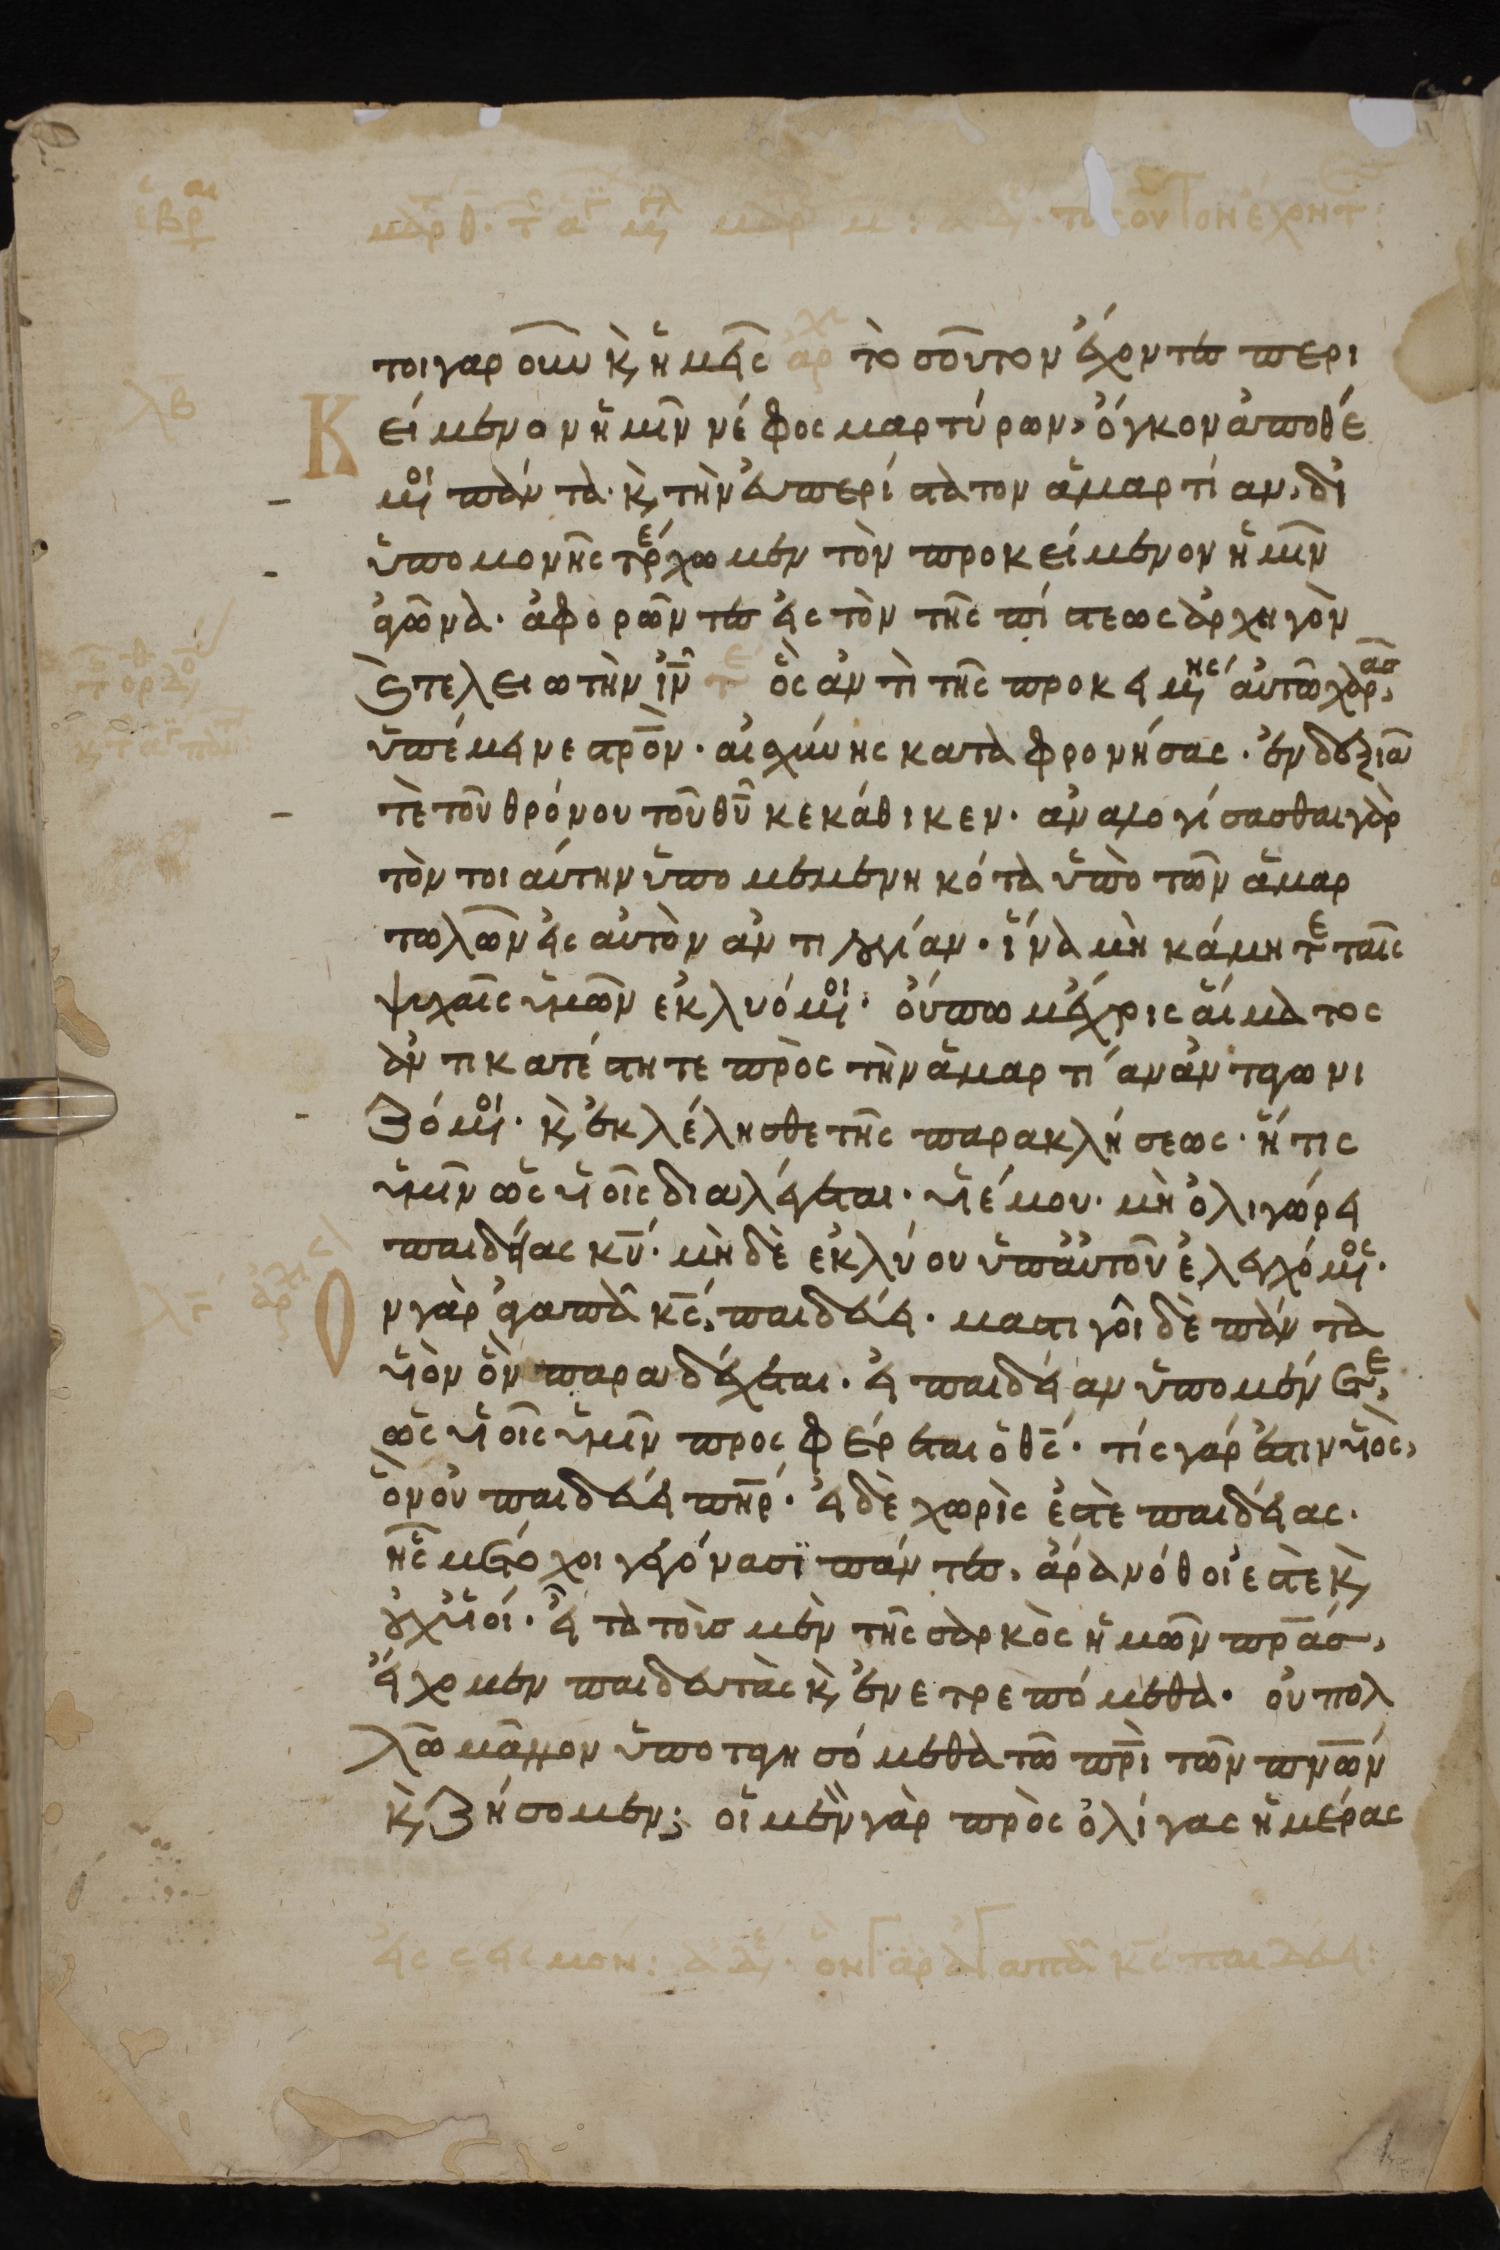 τοιγαροῦν κ ἡμεῖς ἀρχ τοσοῦτον ἔχοντες περι
Κείμενον ἡμῖν νέφος μαρτύρων, ὄγκον ἀποθέ
μοι πάντα· κ τὴν εὐπερίστατον ἁμαρτίαν, δι
ὑπομονῆς τρέχωμεν τὸν προκείμενον ἡμῖν
ἀγῶνα· ἀφορῶντες εἰς τὸν τῆς πίστεως ἀρχηγὸν
κ τελειωτὴν ιν τε ὃς ἀντὶ τῆς προκειμης αὐτῶ χαρας,
ὑπέμεινε στρον· αἰσχύνης καταφρονήσας· ἐν δεξιᾶ
τὲ τοῦ θρόνου τοῦ θυ κεκάθικεν· ἀναλογίσασθαι γὰρ
τὸν τοιαύτην ὑπομεμενηκότα ὑπὸ τῶν ἁμαρ
τωλῶν εἰς αὐτὸν ἀντιλογίαν· ἵνα μὴ κάμητε ταῖς
ψυχαῖς ὑμῶν ἐκλυόμοι· οὔπω μέχρις αἵματος
ἀντικατέστητε πρὸς τὴν ἁμαρτίαν ἀνταγωνι
ζόμοι· κ ἐκλέλησθε τῆς παρακλήσεως· ἥτις
ὑμῖν ὡς υἱοῖς διαλέγεται· υἱέ μου· μὴ ὀλιγώρει
παιδείας κυ· μὴ δὲ ἐκλύου ὑπ αὐτοῦ ἐλεγχόμος·
Ὃν γὰρ ἀγαπᾶ κς, παιδεύει· μαστιγοῖ δὲ πάντα
υἱὸν ὃν παραδέχεται· εἰ παιδείαν ὑπομένετε,
ὡς υἱοῖς ὑμῖν προσφέρεται ὁ θς· τίς γάρ ἐστιν υἱὸς,
ὃν οὐ παιδεύει πηρ· εἰ δὲ χωρὶς ἐστὲ παιδείας·
ἧς μέτοχοι γεγόνασϊ πάντες. ἄρα νόθοι ἐστὲ κ
οὐχ υἱοί· εἶτα τοὺς μὲν τῆς σαρκὸς ἡμῶν πρας,
εἴχομεν παιδευτὰς κ ἐνετρεπόμεθα· οὐ πολ
λῶ μᾶλλον ὑποταγησόμεθα τῶ πρι τῶν πνων
κ ζήσομεν; οἱ μὲν γὰρ πρὸς ὀλίγας ἡμέρας
ὃν γὰρ ἀγαπᾶ κς παιδεύει: